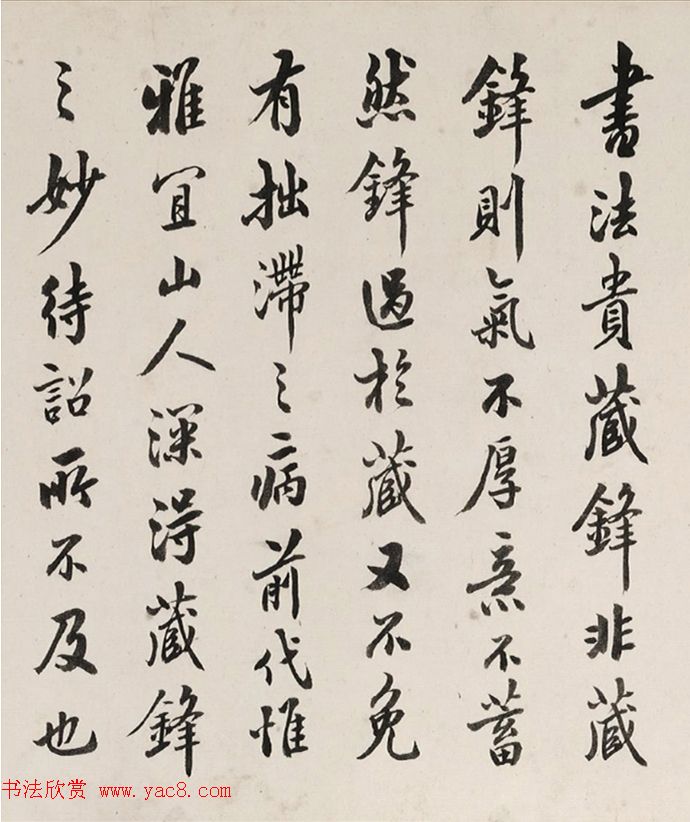 書法貴藏鋒非藏
鋒則氣不厚意不蓄
然鋒過於藏又不免
有拙滯之病前代惟
雅宜山人深得藏鋒
之妙待詔所不及也
书法欣赏 www.yac8.com